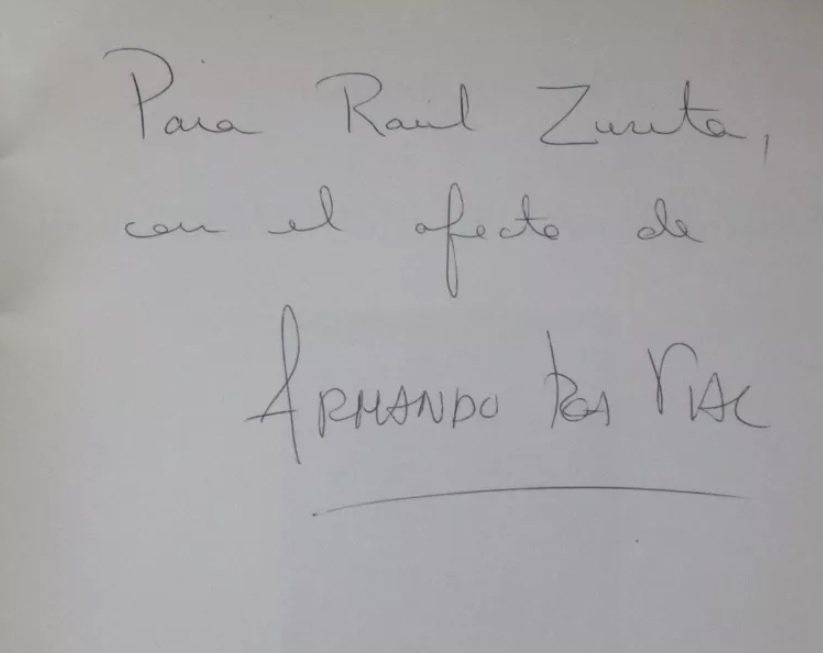 Para Raúl Zurita,
con el afecto de
ARMANDO ROA VIAL